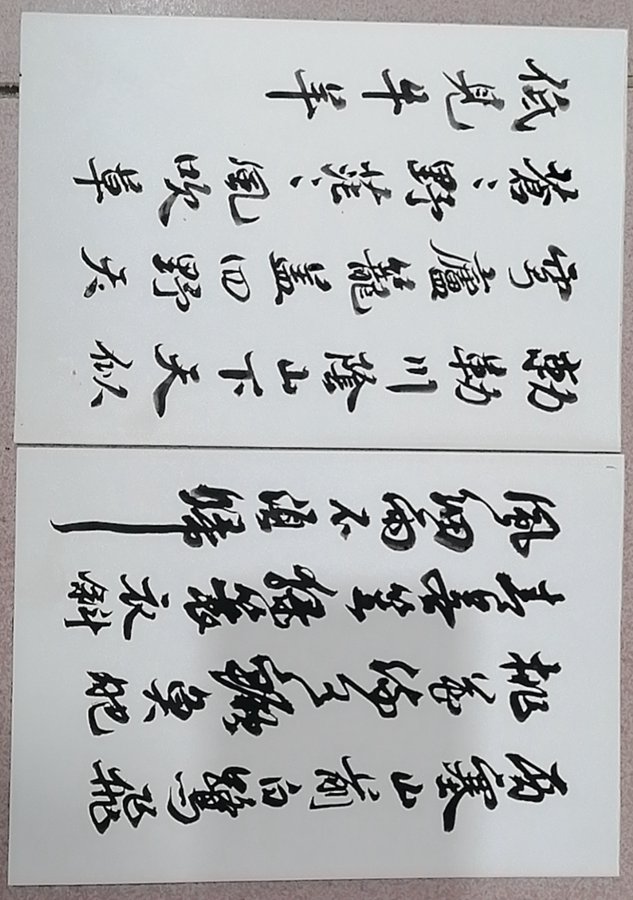 西塞山前白鷺飛
桃花流水鱖魚肥
青箬笠綠蓑衣斜
風細雨不須歸
勅勒川陰山下天似
穹廬籠蓋四野天
蒼、野茫、風吹草
低見牛羊